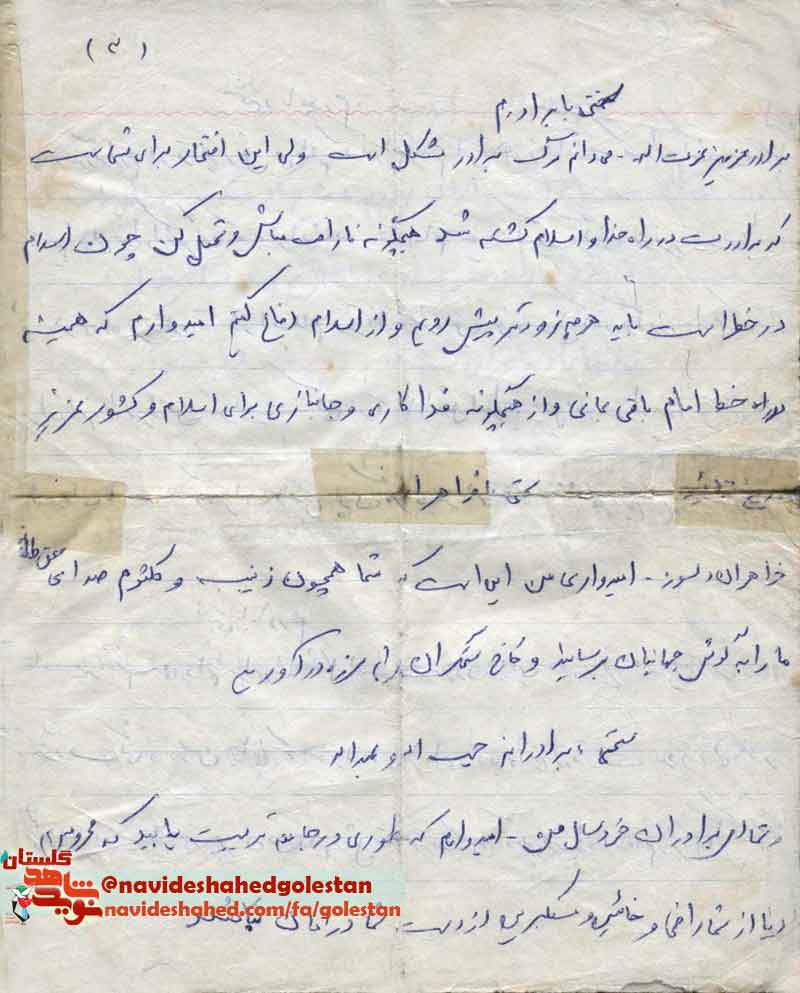 (۳)
سخنی با برادرم
برادر عزیزم عزت اله - می دانم مرگ برادر مشکل است ولی این افتخار برای شماست
که برادرت در راه خدا و اسلام کشته شد هیچگونه ناراحت نباش و تحمل کن چون اسلام
در خطر است باید هرچه زودتر پیش رویم و از اسلام دفاع کنیم امیدوارم که همیشه
در راه خط امام باقی بمانی و از هیچگونه فداکاری و جانبازی برای اسلام و کشور عزیز
سخنی با خواهرا
خواهران دلسوز - امیدواری من این است که شما همچون زینب و کلثوم صدای
ما را به گوش جهانیان برسانید و کاخ ستمگران را به لرزه در آورید
سخنی با برادرانم حبیب اله و عبداله
برادران خردسال من - امیدوارم که طوری در جامعه تربیت یابید که محرومین
دنیا از شما راضی و خائنین و مستکبرین از دست شما در امان نباشند
گلستان
نوید شاهد
@navideshahedgolestan
navideshahed.com/fa/golestan